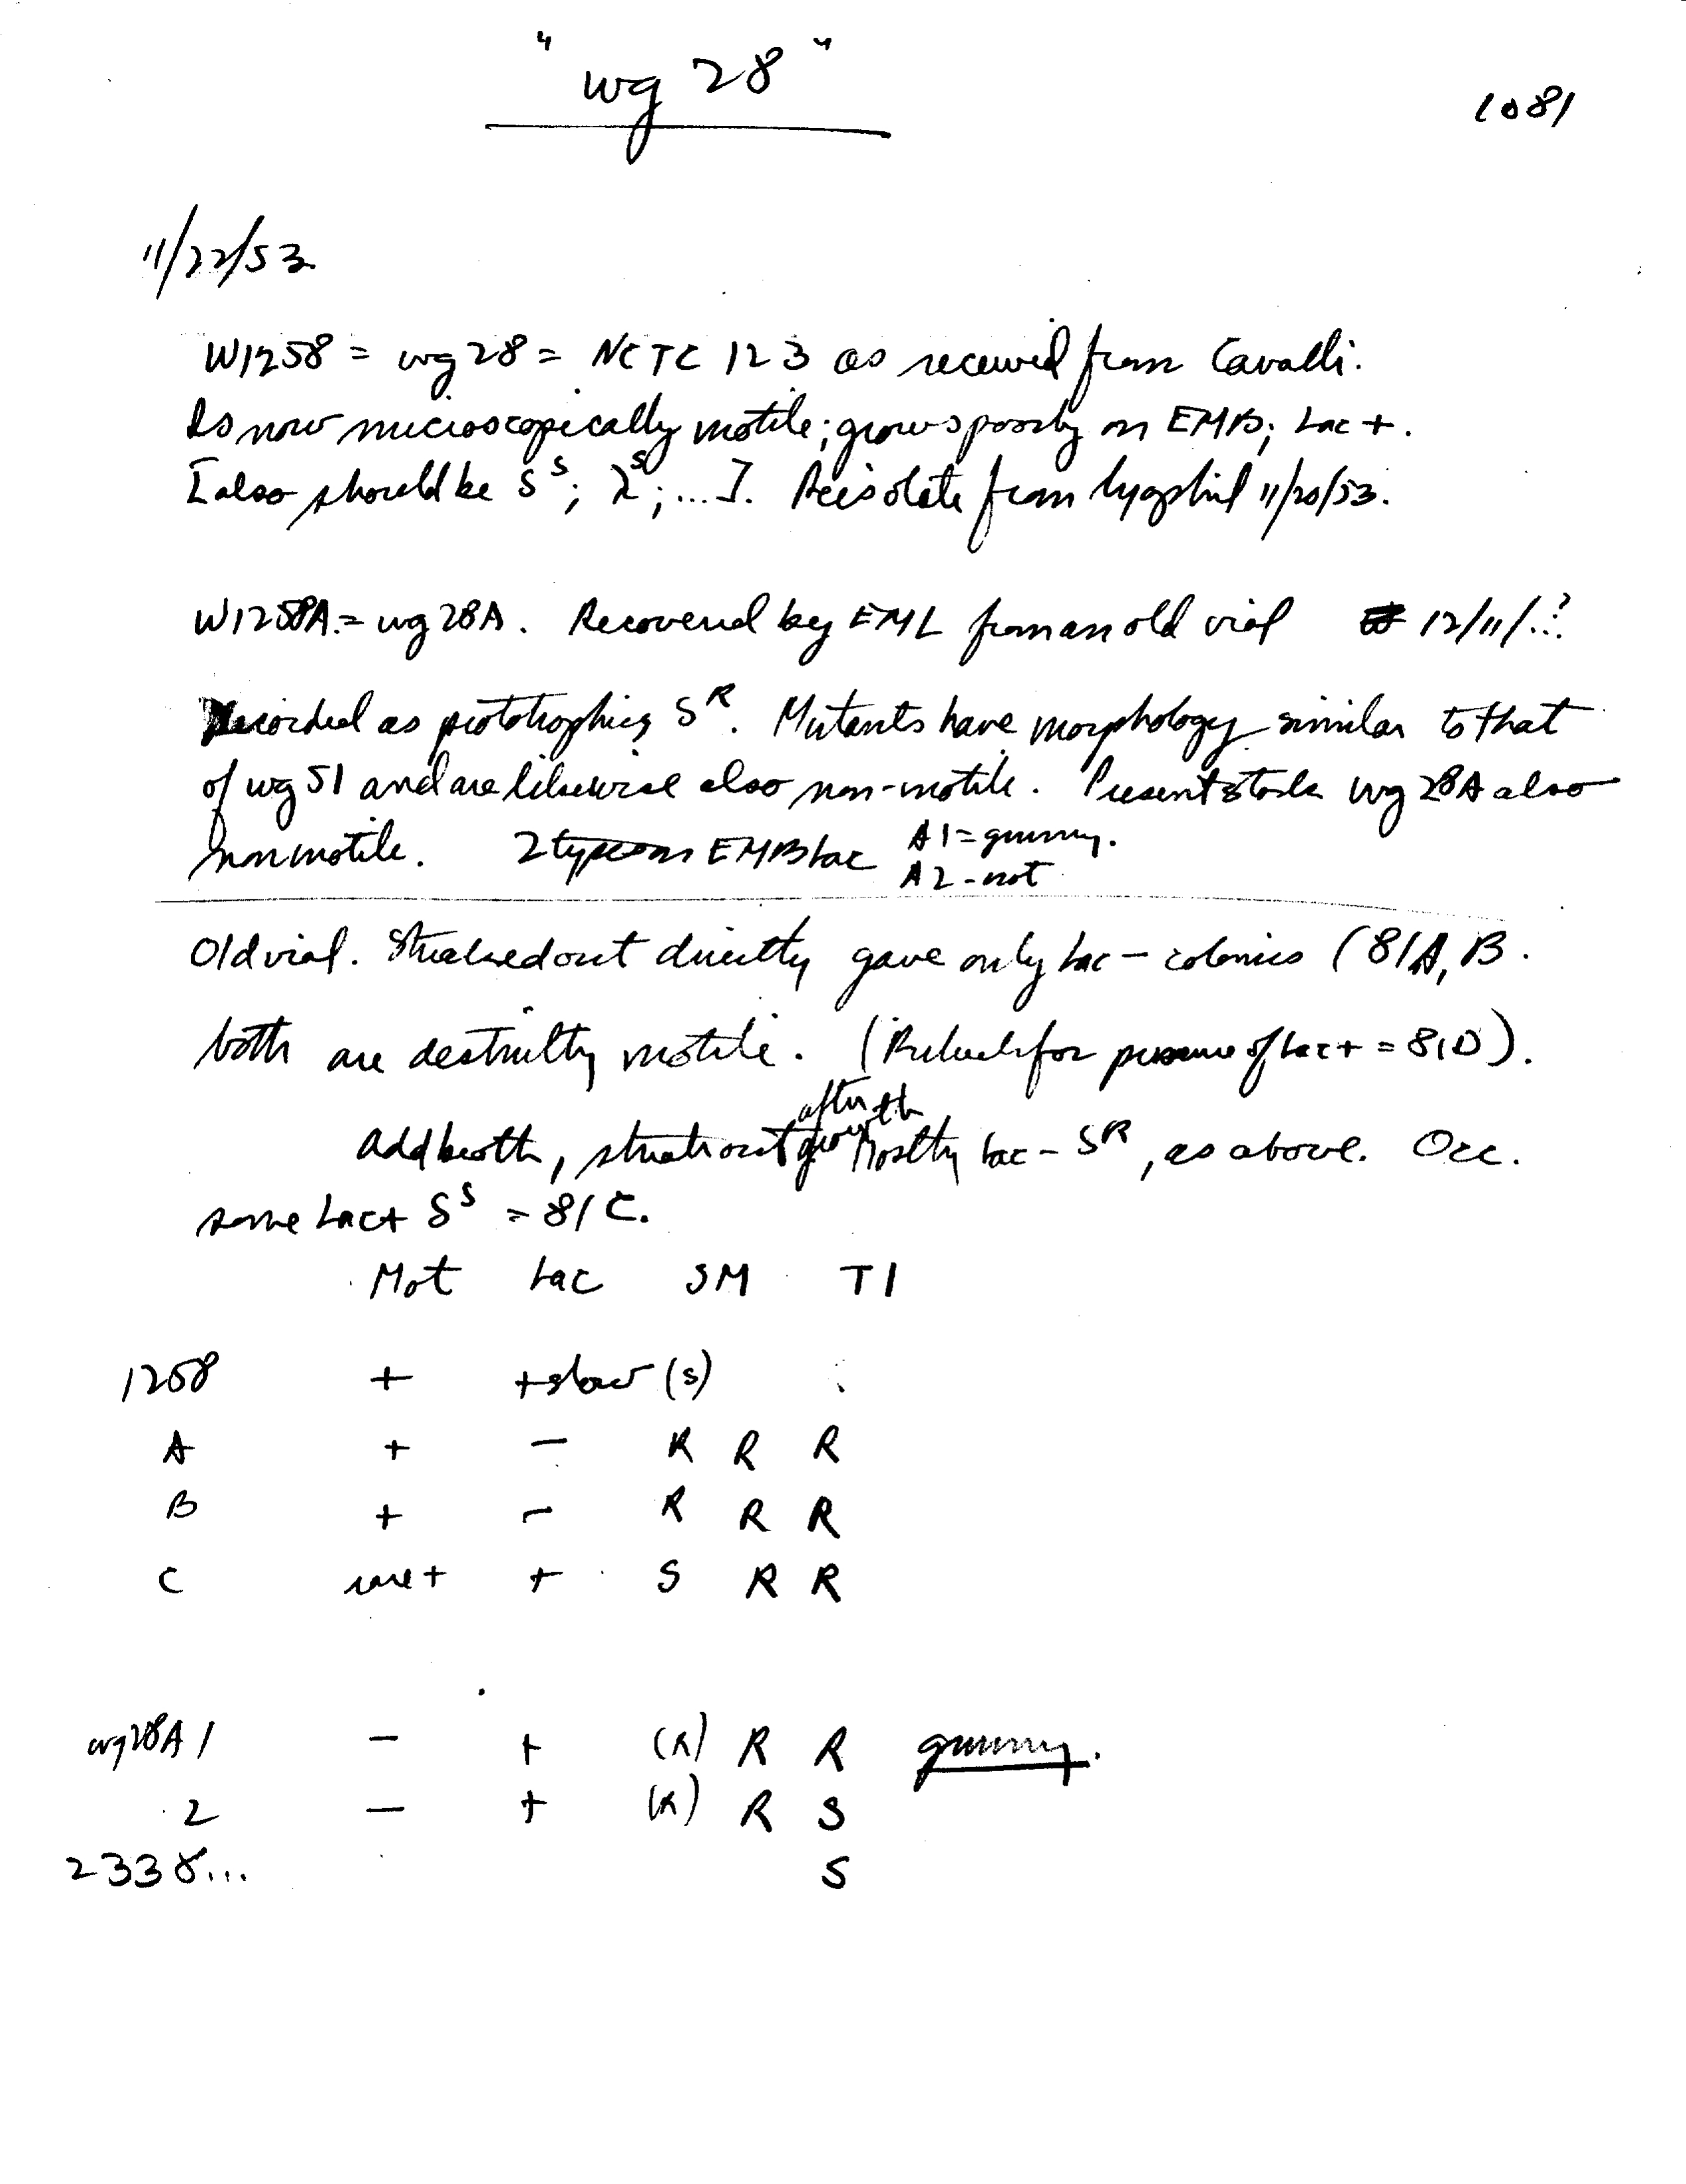 "wg 28"
1081
11/22/53
W1258 = wg 28 = NCTC 123 as received from Cavalli.
Is now microscopically motile; grows poorly on EMB; Lac +.
[also should be S^S; λ^S; ...]. Reisolate from lyophil 11/20/53.
W1258A = wg 28A. Recovered by EML from an old vial 12/11/..?
Recorded as prototrophic, S^R. Mutants have morphology similar to that
of wg 51 and are likewise also non-motile. Present stock wg 28A also
nonmotile. 2 types on EMB Lac A1 = gummy.
A2 - not
Old vial. Streaked out directly gave only Lac - colonies (81A, B.
both are motile. (Recheck for presence of Lac + = 81D).
Add broth, streak out after growth Mostly Lac - S^R, as above. Occ.
some Lac + S^S = 81C.
Mot Lac SM T1
1258 + + slow (s)
A + - R R R
B + - R R R
C rare + + S R R
wg28A1 - + (R) R R gummy.
2 - + (R) R S
2338... S